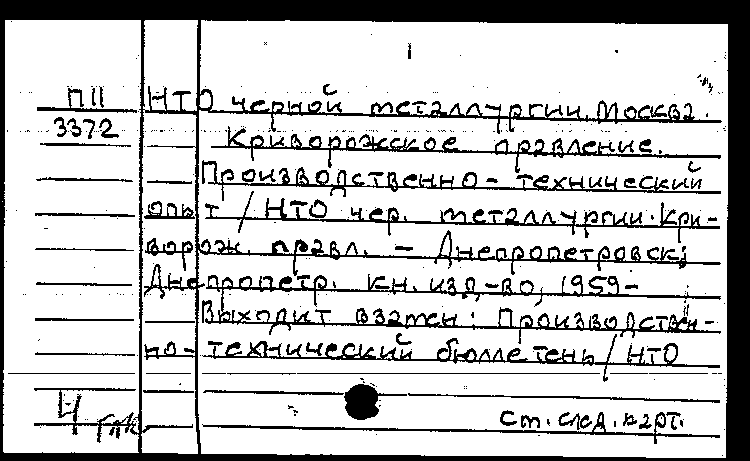 1
П11 НТО черной металлургии. Москва.
3372 Криворожское правление.
Производственно-технический
опыт / НТО чер. металлургии. Кри-
ворож. правл. - Днепропетровск;
Днепропетр. кн. изд-во, 1959-
Выходит взамен: Производствен-
но-технический бюллетень / НТО
Ч
См. след. карт.